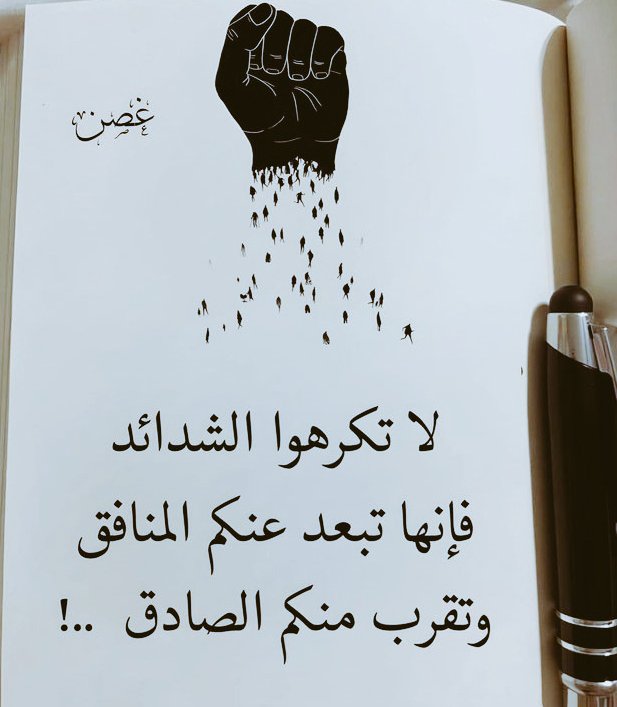 غصن
لا تكرهوا الشدائد
فإنها تبعد عنكم المنافق
وتقرب منكم الصادق ..!